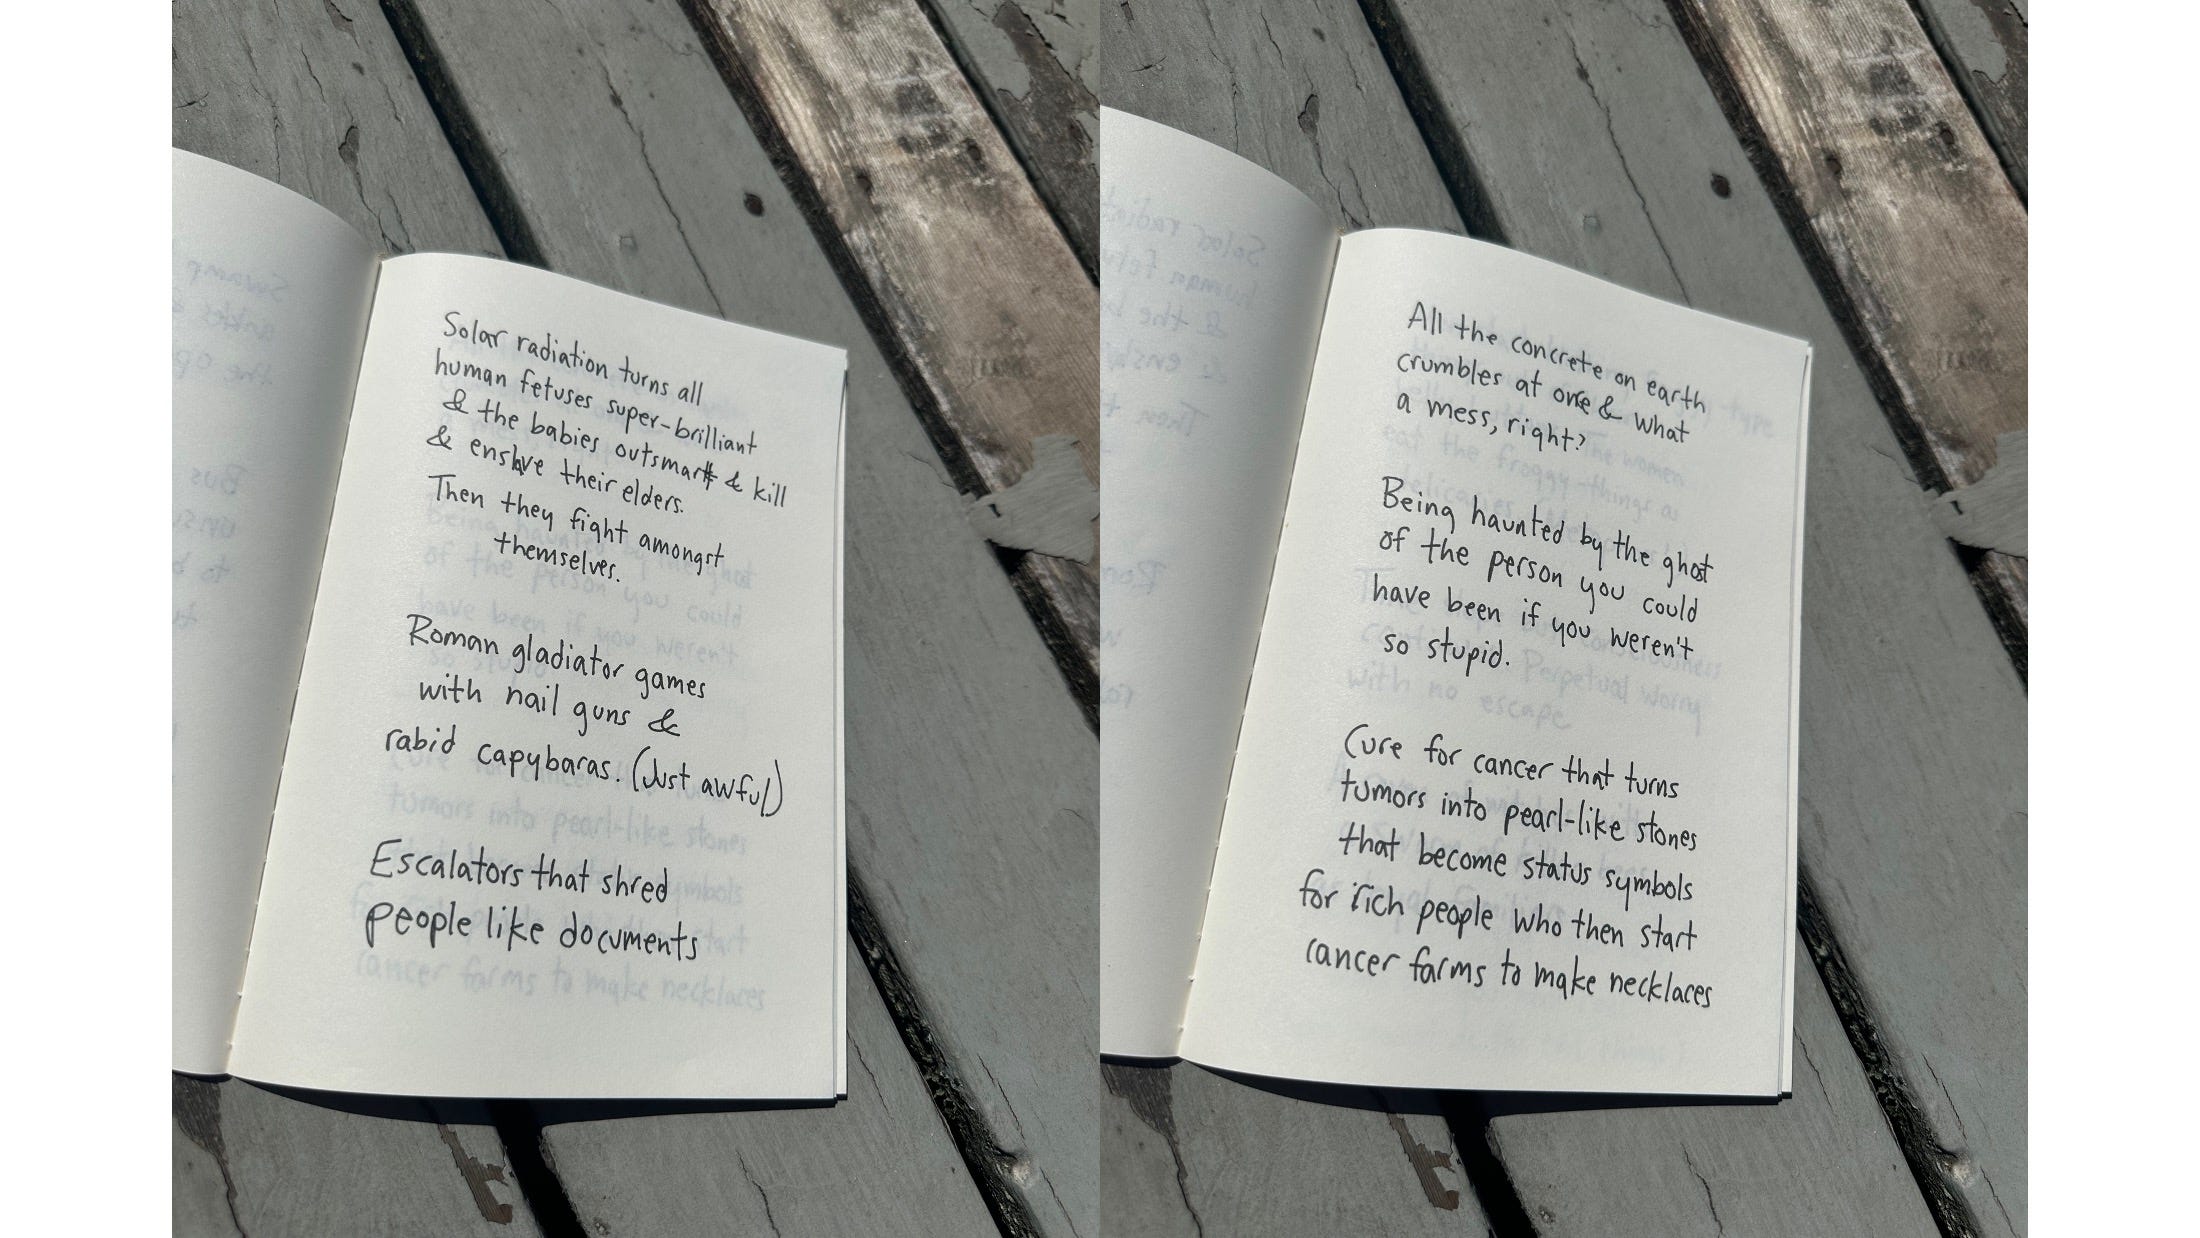 Solar radiation turns all
human fetuses super-brilliant
& the babies outsmart & kill
& enslave their elders.
Then they fight amongst
themselves.
Roman gladiator games
with nail guns &
rabid capybaras. (Just awful)
Escalators that shred
people like documents
All the concrete on earth
crumbles at once & what
a mess, right?
Being haunted by the ghost
of the person you could
have been if you weren't
so stupid.
Cure for cancer that turns
tumors into pearl-like stones
that become status symbols
for rich people who then start
cancer farms to make necklaces